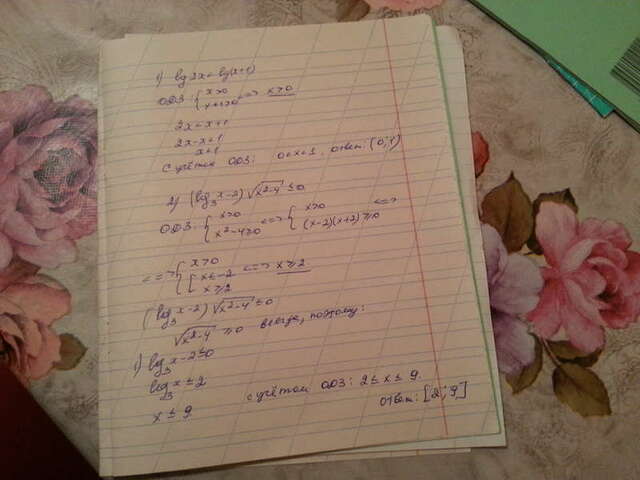 1) lg 2x < lg(x+1)
ОДЗ: { x>0 x+1>0 <=> x>0
2x < x+1
2x-x<1
x<1
С учётом ОДЗ: 0<x<1. Ответ: (0;1)
2) (log₃ x-2)√x²-4 ≤ 0
ОДЗ: { x>0 x²-4≥0 <=> { x>0 (x-2)(x+2)≥0 <=>
<=> { x>0 [ x≤-2 x≥2 <=> x≥2
(log₃ x-2)√x²-4 ≤ 0
√x²-4 ≥0 всегда, поэтому:
1) log₃ x-2≤0
log₃ x ≤ 2
x ≤ 9
с учётом ОДЗ: 2 ≤ x ≤ 9.
Ответ: [2; 9]